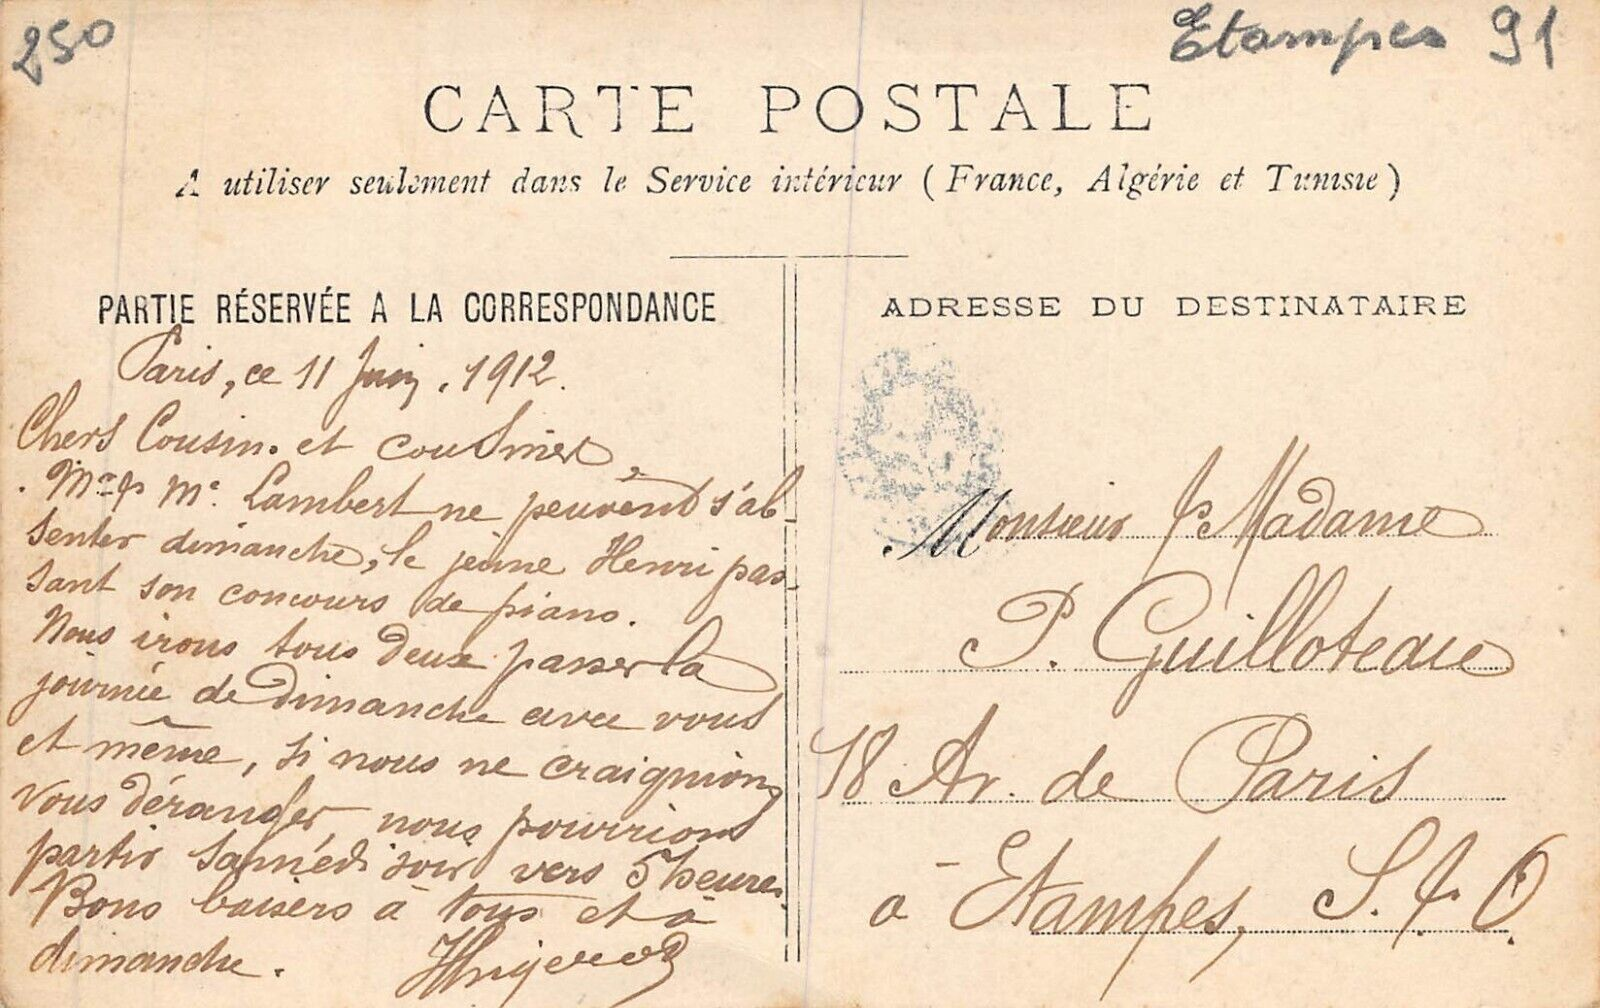 250
Etampes 91
CARTE POSTALE
A utiliser seulement dans le Service intérieur (France, Algérie et Tunisie)
PARTIE RÉSERVÉE A LA CORRESPONDANCE
Paris, ce 11 Juin. 1912.
Chers Cousin. et cousines,
. Mr & Me Lambert ne peuvent s'ab-
senter dimanche, le jeune Henri pas-
sant son concours de piano.
Nous irons tous deux passer la
journée de dimanche avec vous
et même, si nous ne craignions
vous déranger, nous pourrions
partir samedi soir vers 5 heures.
Bons baisers à tous et à
dimanche.
ADRESSE DU DESTINATAIRE
Monsieur & Madame
P. Guilloteau
18 Av. de Paris
à Etampes, S. & O.